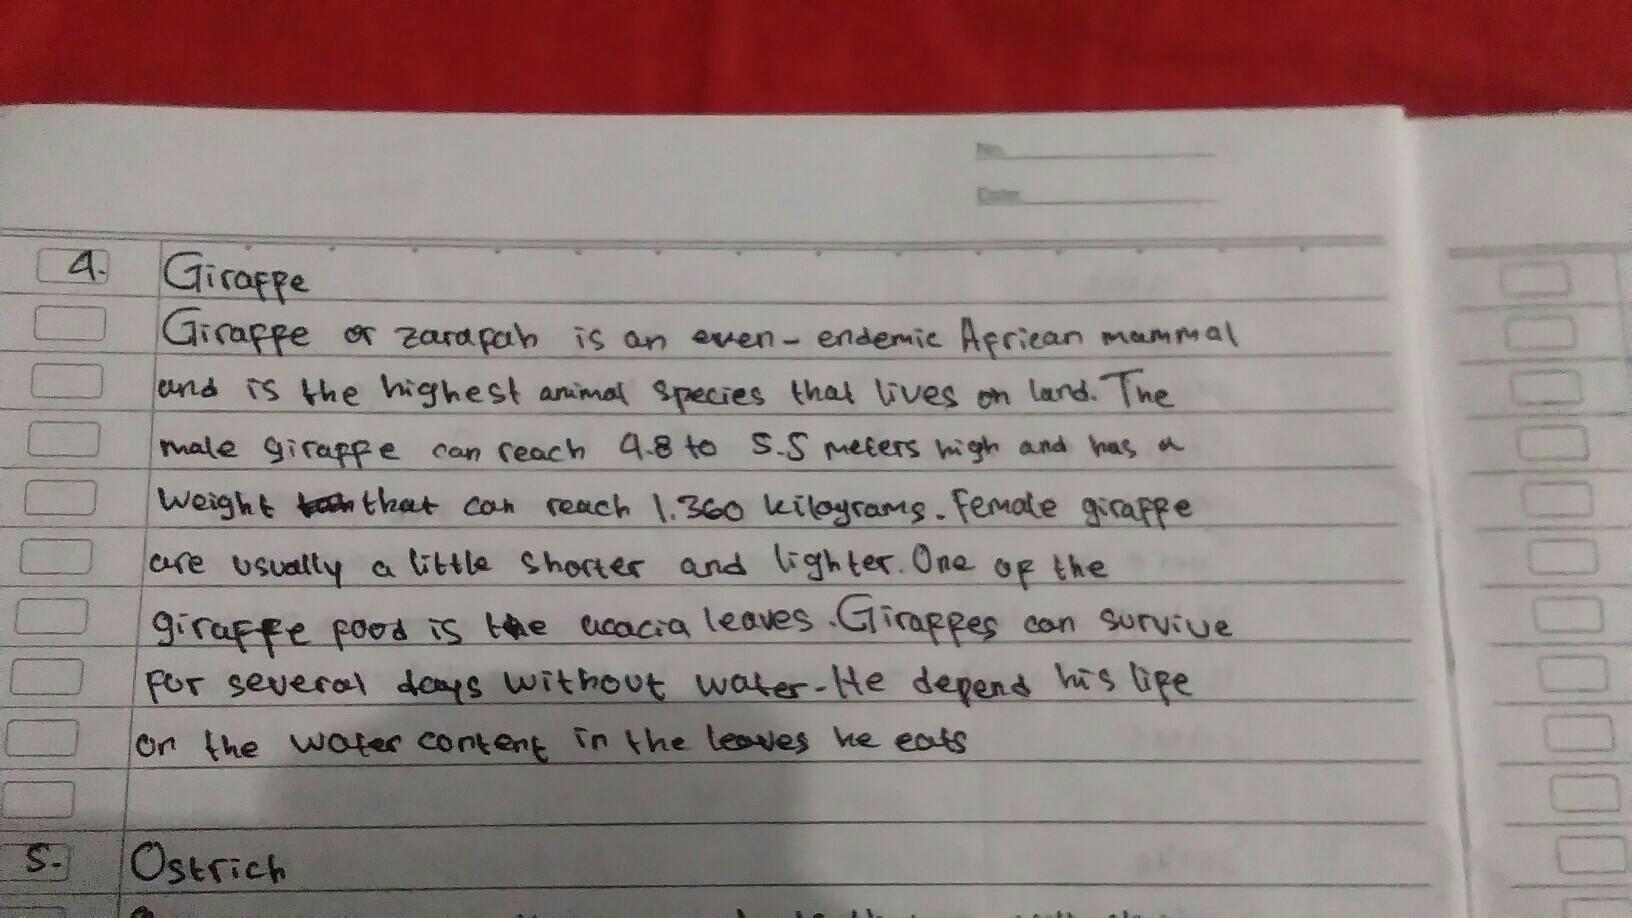 No.
Date
4. Giraffe
Giraffe or zarafah is an even- endemic African mammal
and is the highest animal species that lives on land. The
male giraffe can reach 4.8 to 5.5 meters high and has a
weight that can reach 1.360 kilograms. Female giraffe
are usually a little shorter and lighter. One of the
giraffe food is the acacia leaves. Giraffes can survive
for several days without water. He depend his life
on the water content in the leaves he eats
5. Ostrich